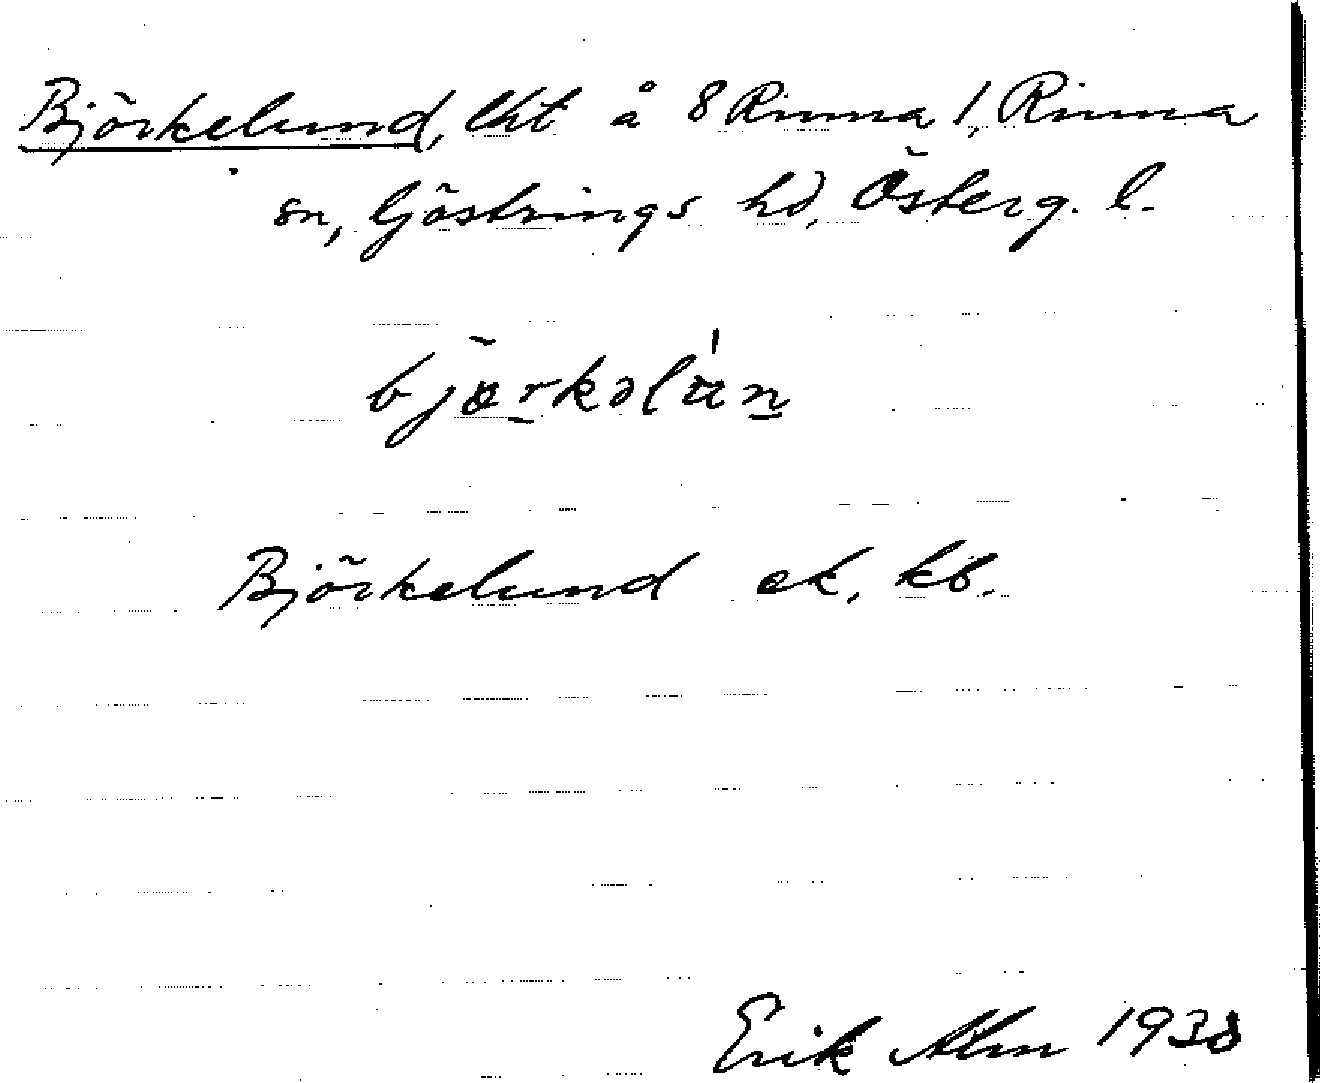 Björkelund, lht å 8 Rinna 1, Rinna
sn, Göstrings hd, Österg. l.
björkəlun
Björkelund ek, kb.
Erik Alm 1938